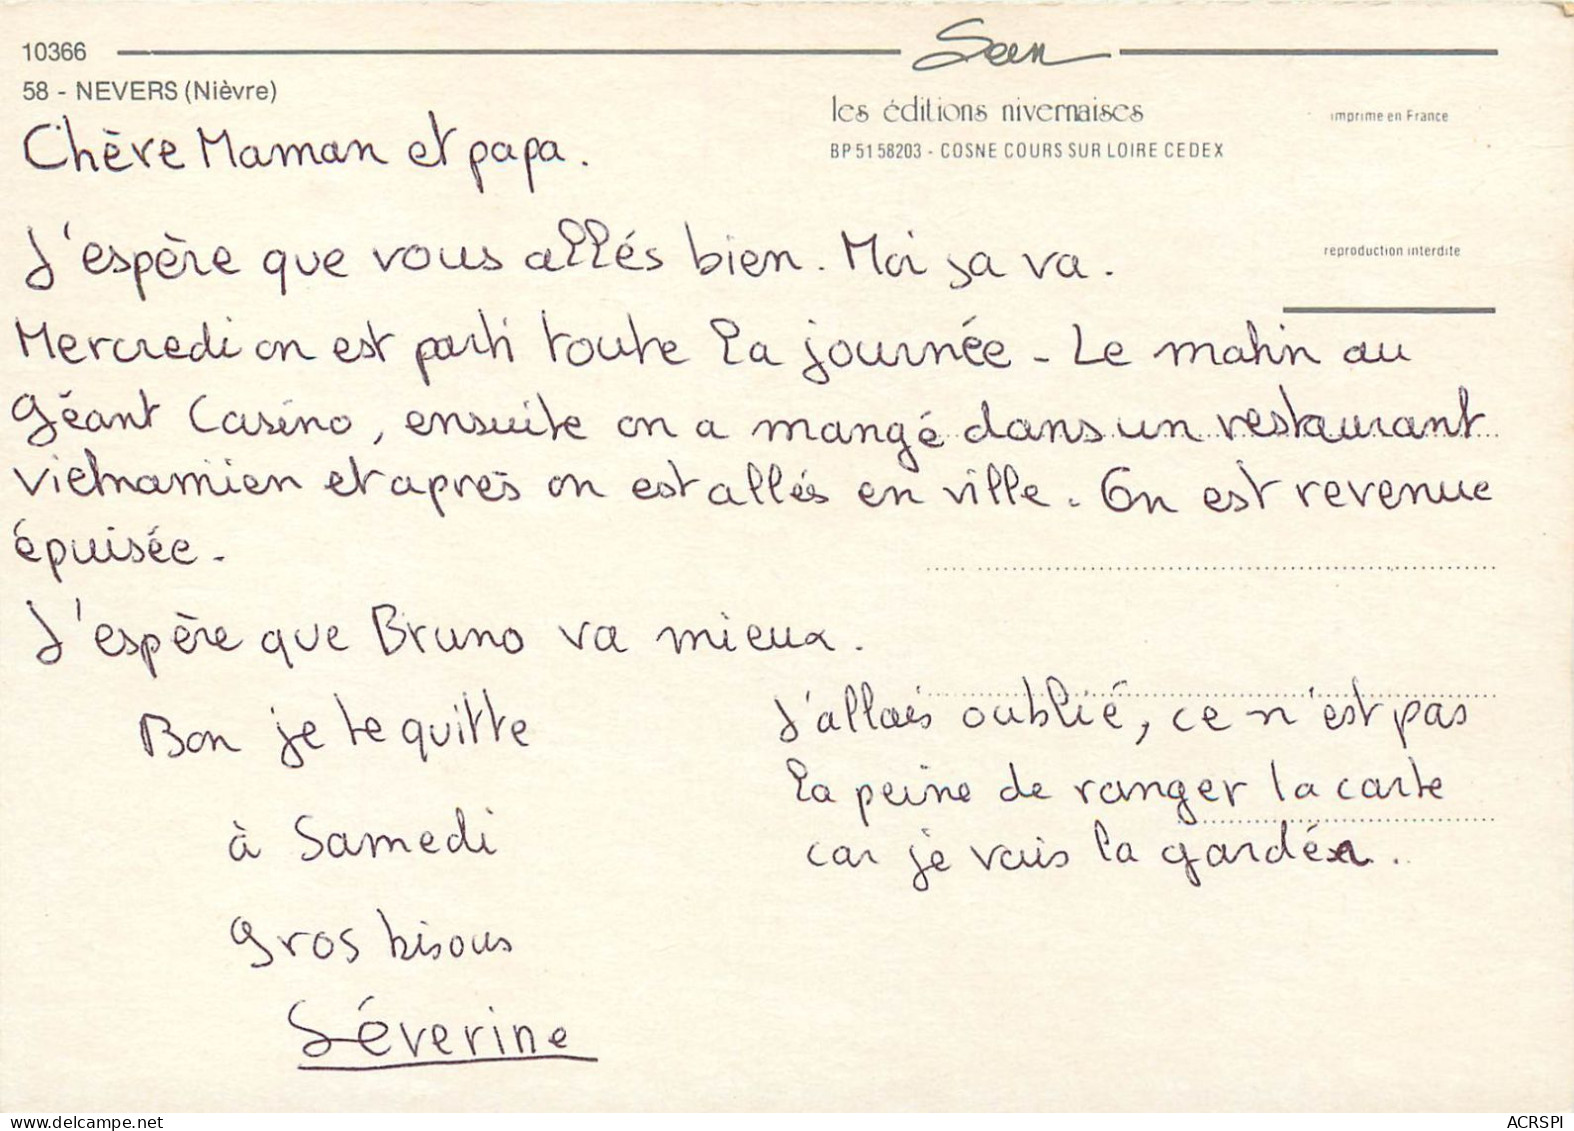 10366
Seen
58 - NEVERS (Nièvre)
les éditions nivernaises
imprimé en France
BP 51 58203 - COSNE COURS SUR LOIRE CEDEX
reproduction interdite
Chère Maman et papa.
J'espère que vous allés bien. Moi sa va.
Mercredi on est parti toute la journée - Le matin au
géant Casino, ensuite on a mangé dans un restaurant
vietnamien et après on est allés en ville. On est revenue
épuisée.
J'espère que Bruno va mieux.
Bon je te quitte
à Samedi
gros bisous
Séverine
J'allais oublié, ce n'est pas
la peine de ranger la carte
car je vais la gardér.
ACRSPI